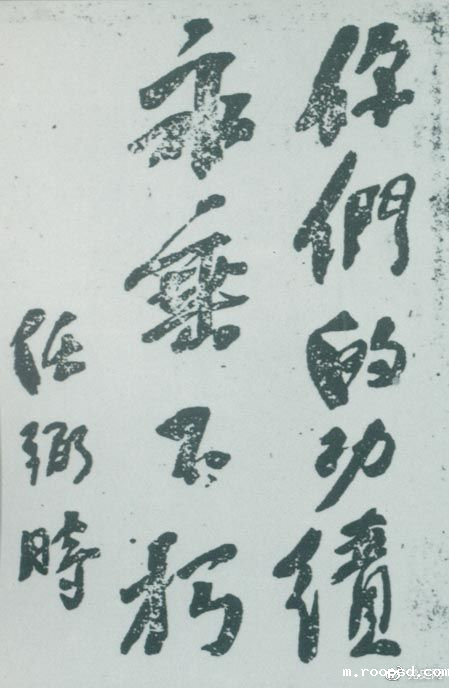 你們的功績
永垂不朽
任弼時
m.rooped.com